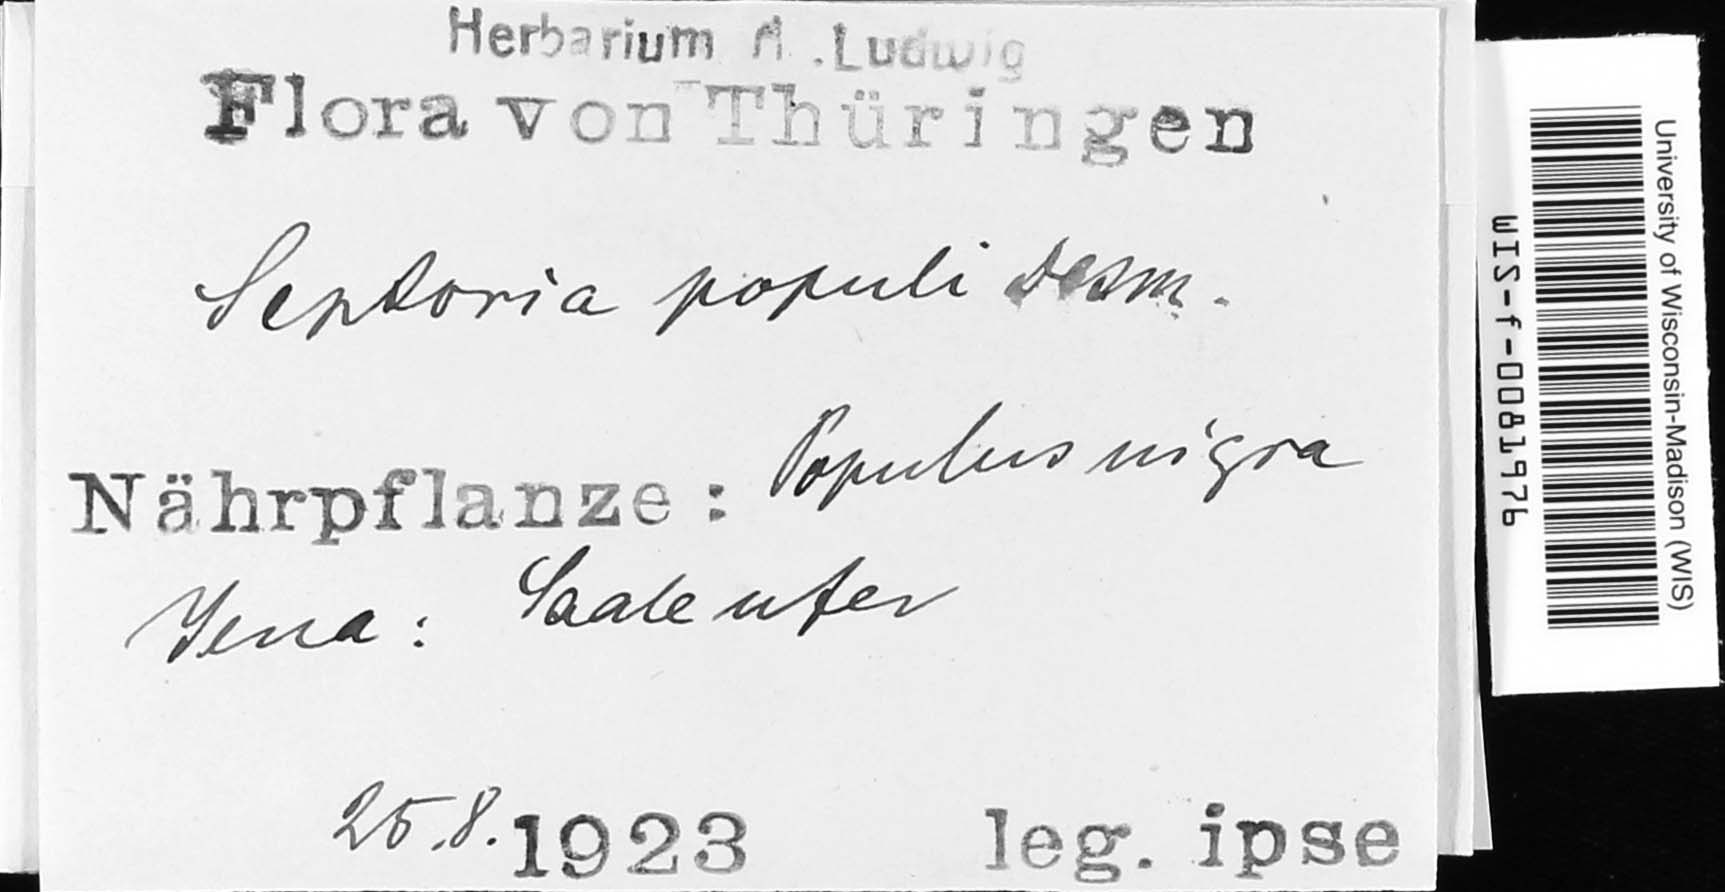 Herbarium A. Ludwig
Flora von Thüringen
Septoria populi Desm.
Nährpflanze: Populus nigra
Jena: Saaleufer
25.8.1923 leg. ipse
University of Wisconsin-Madison (WIS)
WIS-f-0081976